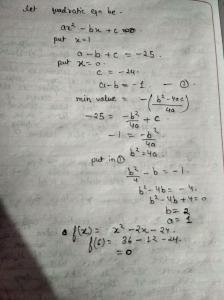 let quadratic eqn be -
ax² - bx + c
put x=1
a - b + c = -25.
put x = 0.
c = -24.
a - b = -1. - ①.
min value = -(b² - 4ac / 4a)
-25 = -b²/4a + c
-1 = -b²/4a
put in ① b² = 4a.
b²/4 - b = -1.
b² - 4b = -4.
b² - 4b + 4 = 0
b = 2
a = 1
f(x) = x² - 2x - 24.
f(6) = 36 - 12 - 24.
= 0